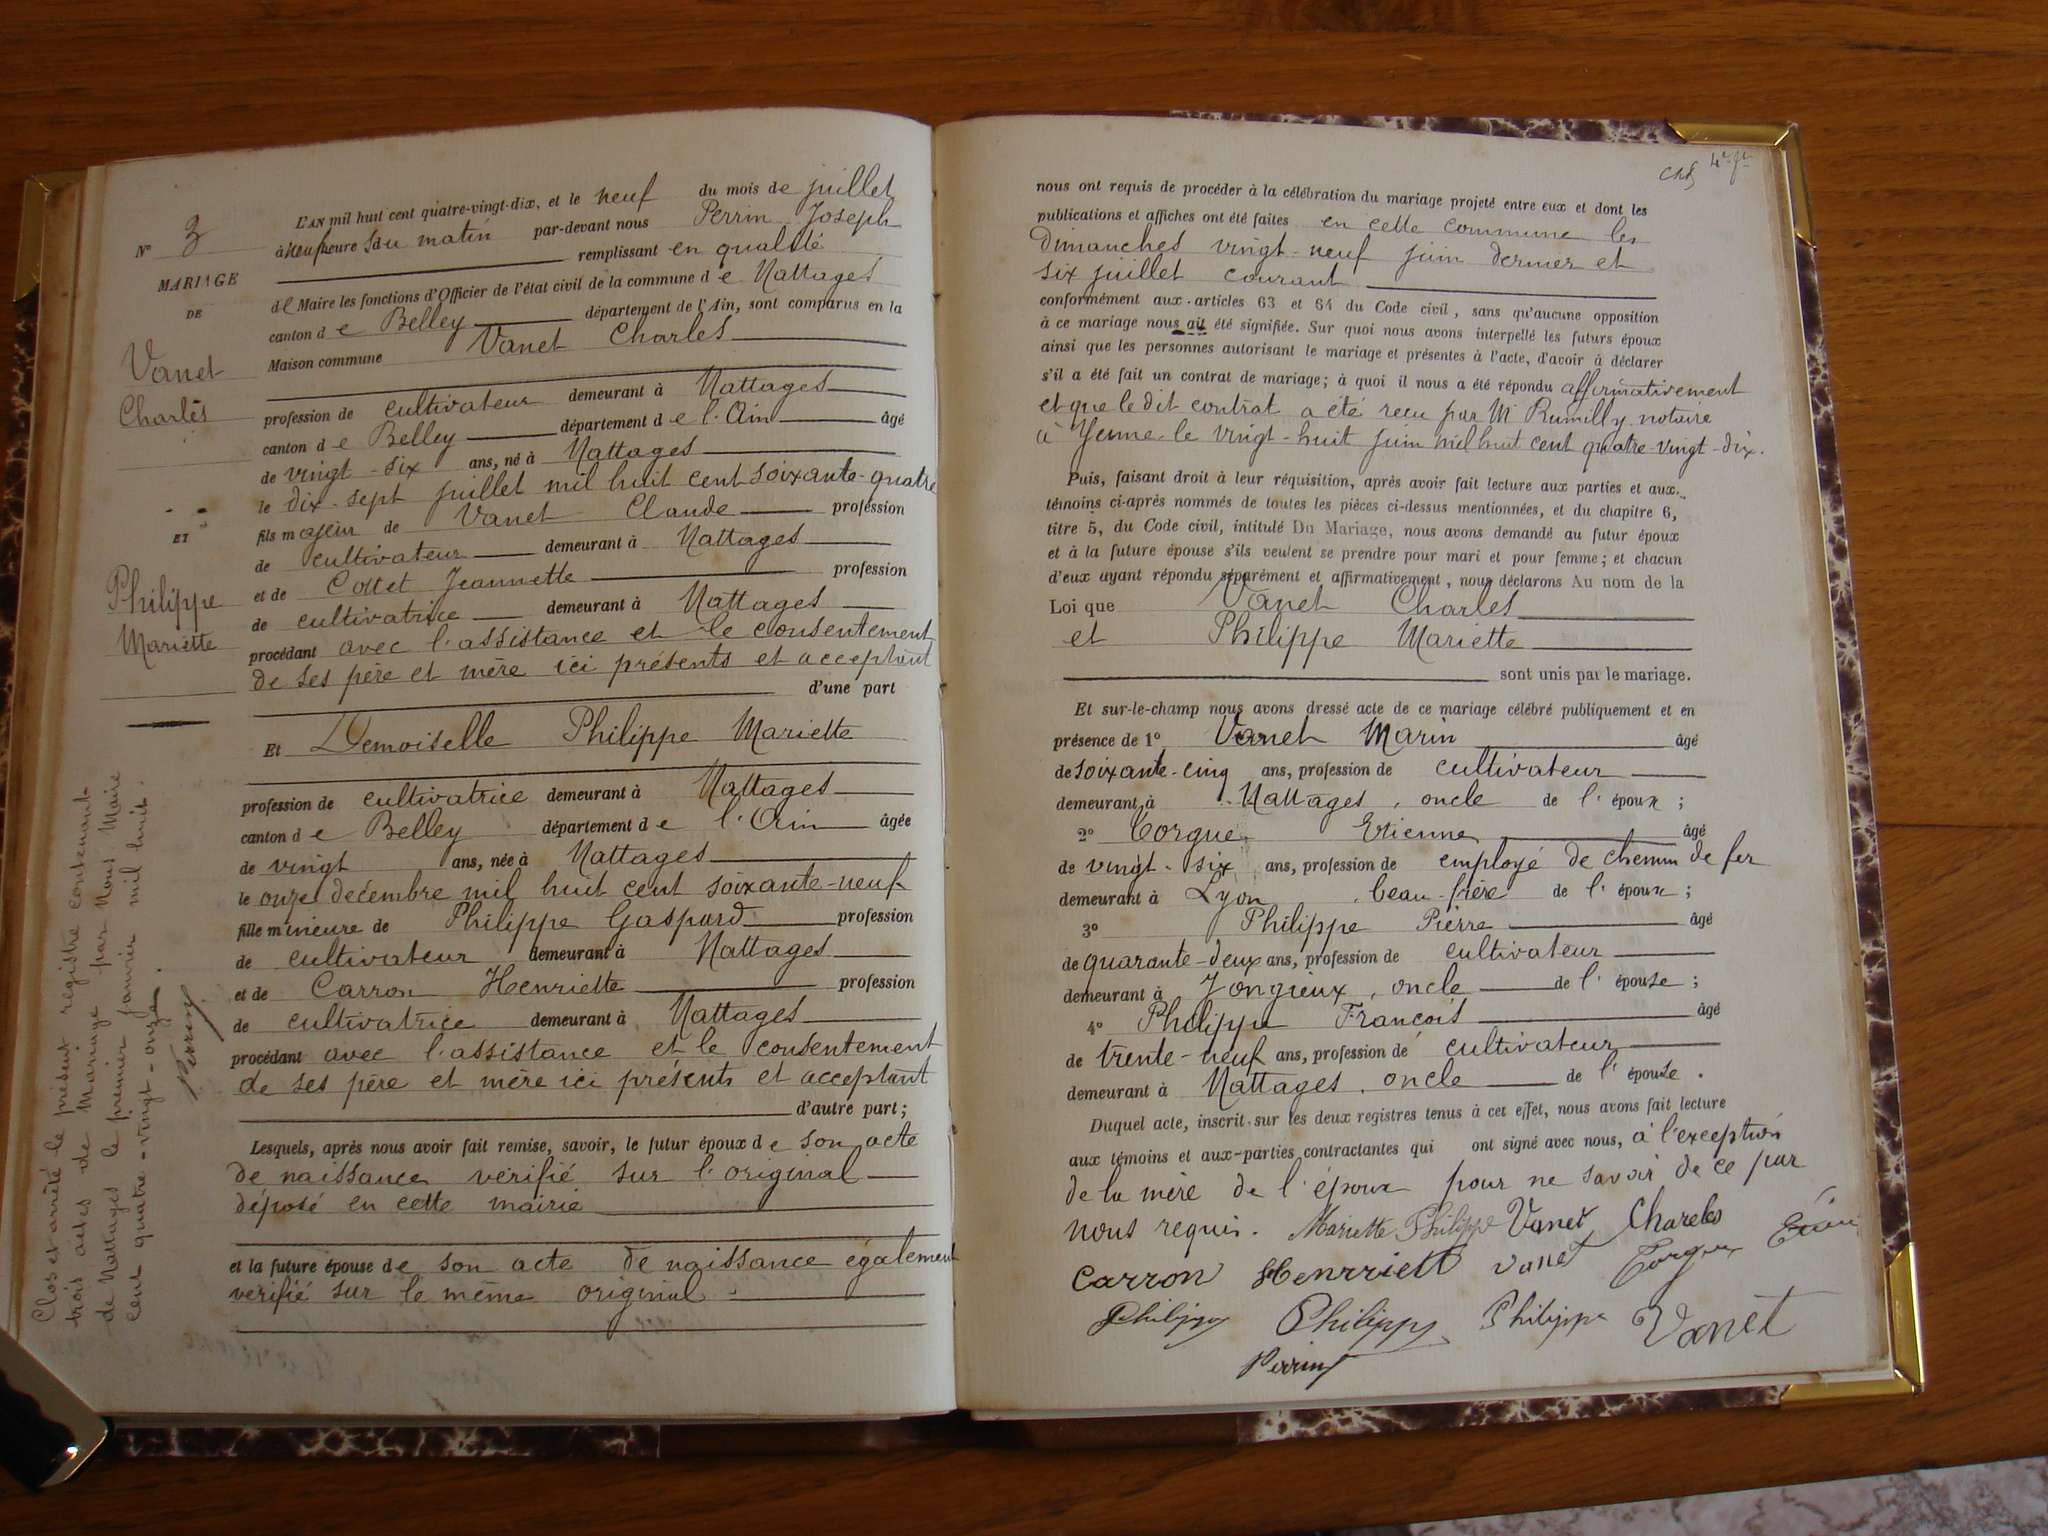 L'AN mil huit cent quatre-vingt-dix, et le neuf du mois de juillet
à neuf heures du matin par-devant nous Perrin Joseph
remplissant en qualité
de Maire les fonctions d'Officier de l'état civil de la commune de Nattages
canton de Belley département de l'Ain, sont comparus en la
Maison commune Vanet Charles
profession de cultivateur demeurant à Nattages
canton de Belley département de l'Ain âgé
de vingt-six ans, né à Nattages
le dix-sept juillet mil huit cent soixante-quatre
fils majeur de Vanet Claude profession
de cultivateur demeurant à Nattages
et de Collet Jeannette profession
de cultivatrice demeurant à Nattages
procédant avec l'assistance et le consentement
de ses père et mère ici présents et acceptant
d'une part
Et Demoiselle Philippe Mariette
profession de cultivatrice demeurant à Nattages
canton de Belley département de l'Ain âgée
de vingt ans, née à Nattages
le onze décembre mil huit cent soixante-neuf
fille mineure de Philippe Gaspard profession
de cultivateur demeurant à Nattages
et de Carron Henriette profession
de cultivatrice demeurant à Nattages
procédant avec l'assistance et le consentement
de ses père et mère ici présents et acceptant
d'autre part;
Lesquels, après nous avoir fait remise, savoir, le futur époux de son acte
de naissance vérifié sur l'original
déposé en cette mairie
et la future épouse de son acte de naissance également
vérifié sur le même original.
N° 3
MARIAGE
DE
Vanet
Charles
ET
Philippe
Mariette
Clos et arrêté le présent registre contenant
trois actes de Mariage par Nous Maire
de Nattages le premier janvier mil huit
cent quatre-vingt-onze.
Perrin
4e ft
nous ont requis de procéder à la célébration du mariage projeté entre eux et dont les
publications et affiches ont été faites en cette commune les
dimanches vingt-neuf juin dernier et
six juillet courant
conformément aux articles 63 et 64 du Code civil, sans qu'aucune opposition
à ce mariage nous ait été signifiée. Sur quoi nous avons interpellé les futurs époux
ainsi que les personnes autorisant le mariage et présentes à l'acte, d'avoir à déclarer
s'il a été fait un contrat de mariage; à quoi il nous a été répondu affirmativement
et que le dit contrat a été reçu par Me Rumilly notaire
à Yenne le vingt-huit juin mil huit cent quatre-vingt-dix.
Puis, faisant droit à leur réquisition, après avoir fait lecture aux parties et aux
témoins ci-après nommés de toutes les pièces ci-dessus mentionnées, et du chapitre 6,
titre 5, du Code civil, intitulé Du Mariage, nous avons demandé au futur époux
et à la future épouse s'ils veulent se prendre pour mari et pour femme; et chacun
d'eux ayant répondu séparément et affirmativement, nous déclarons Au nom de la
Loi que Vanet Charles
et Philippe Mariette
sont unis par le mariage.
Et sur-le-champ nous avons dressé acte de ce mariage célébré publiquement et en
présence de 1° Vanet Marin âgé
de soixante-cinq ans, profession de cultivateur
demeurant à Nattages, oncle de l'époux;
2° Torgue Etienne âgé
de vingt-six ans, profession de employé de chemin de fer
demeurant à Lyon, beau-frère de l'époux;
3° Philippe Pierre âgé
de quarante-deux ans, profession de cultivateur
demeurant à Jongieux, oncle de l'épouse;
4° Philippe François âgé
de trente-neuf ans, profession de cultivateur
demeurant à Nattages, oncle de l'épouse.
Duquel acte, inscrit sur les deux registres tenus à cet effet, nous avons fait lecture
aux témoins et aux parties contractantes qui ont signé avec nous, à l'exception
de la mère de l'époux pour ne savoir de ce par
nous requis. Mariette Philippe Vanet Charles
Carron Henrriett Vanet Torgue
Philippe Philippe Philippe Vanet
Perrin